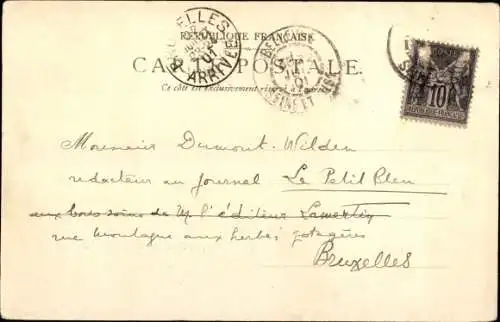 RÉPUBLIQUE FRANÇAISE
CARTE POSTALE.
Ce côté est exclusivement réservé à l'adresse
ELLES
ARRIVÉE
10
Monsieur Dumont-Wilden
redacteur au Journal Le Petit Bleu
aux bons soins de M l'éditeur Lamertin
rue montagne aux herbes potagères
Bruxelles